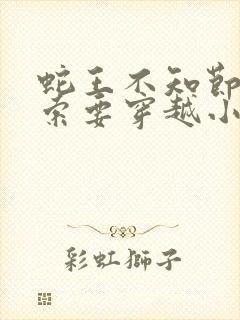 蛇王不知節
索要穿越小
彩虹獅子